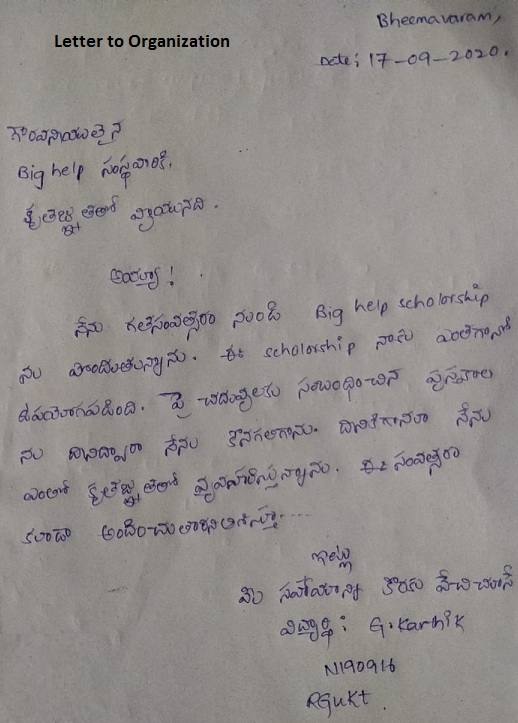 Bheemavaram,
Letter to Organization
Date: 17-09-2020.
గౌరవనీయులైన
Big help సంస్థవారికి,
కృతజ్ఞతతో వ్రాయునది.
అయ్యా!
నేను గతసంవత్సరం నుండి Big help scholorship
ను పొందుతున్నాను. ఈ scholorship నాకు ఎంతగానో
ఉపయోగపడింది. పై చదువులకు సంబంధించిన పుస్తకాల
ను దీనిద్వారా నేను కొనగలిగాను. దీనికిగానూ నేను
ఎంతో కృతజ్ఞతతో వ్యవహరిస్తున్నాను. ఈ సంవత్సరం
కూడా అందించుతారని ఆశిస్తూ.....
ఇట్లు
మీ సహాయాన్ని కొరకు వేచిచూసే
విద్యార్థి: G.Karthik
N190916
RGUKT.